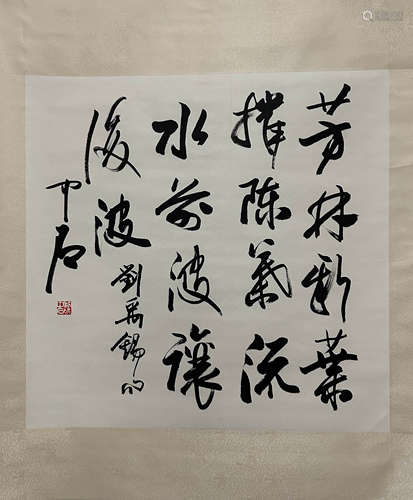 芳林新葉
摧陳葉流
水前波讓
後波
劉禹錫句
中石